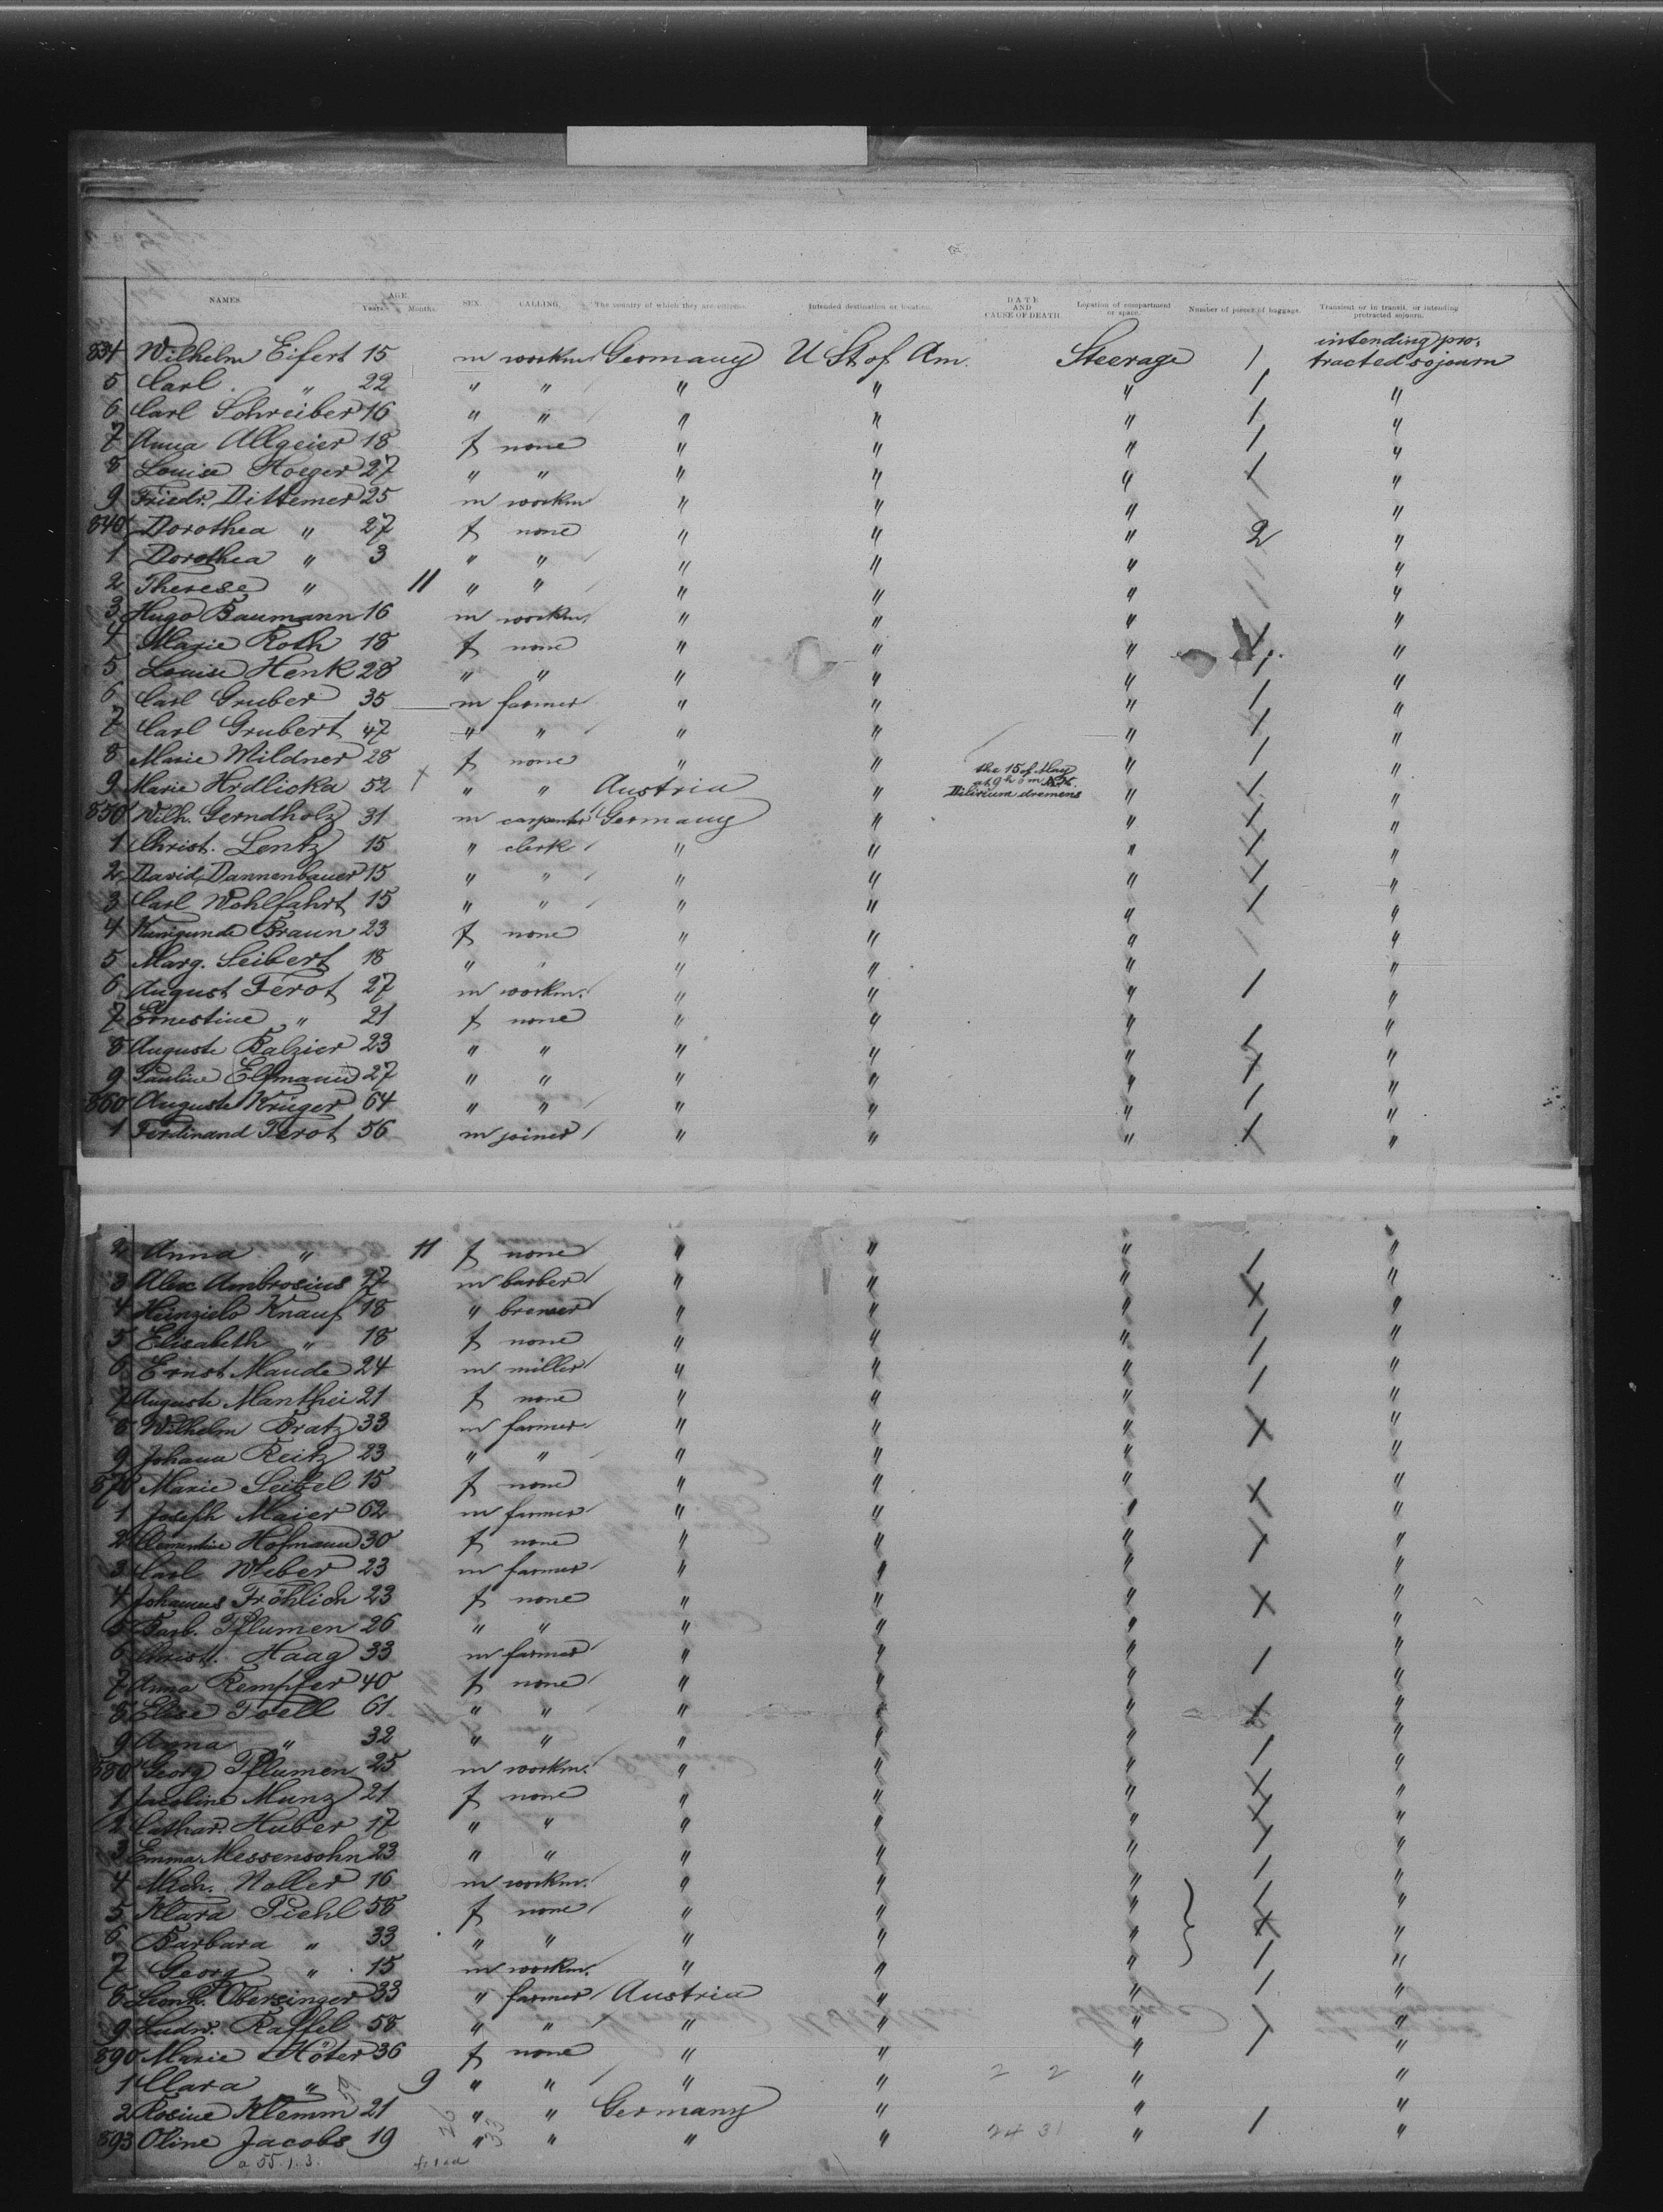 NAMES. AGE. Years. Months. SEX. CALLING. The country of which they are citizens. Intended destination or location. DATE AND CAUSE OF DEATH. Location of compartment or space. Number of pieces of baggage. Transient or in transit, or intending protracted sojourn.
834 Wilhelm Eifert 15 m workm Germany U St of Am. Steerage 1 intending pro-tracted sojourn
5 Carl " 22 " " " " " 1 "
6 Carl Schreiber 16 " " " " " 1 "
7 Anna Allgeier 18 f none " " " 1 "
8 Louise Hoeger 27 " " " " " 1 "
9 Friedr. Dittemer 25 m workm " " " "
840 Dorothea " 27 f none " " " 2 "
1 Dorothea " 3 " " " " " "
2 Therese " 11 " " " " " "
3 Hugo Baumann 16 m workm. " " " "
4 Marie Roth 18 f none " " " 1 "
5 Louise Henk 28 " " " " " 1 "
6 Carl Gruber 35 m farmer " " " 1 "
7 Carl Grubert 47 " " " " " 1 "
8 Marie Mildner 28 f none " " " 1 "
9 Marie Hrdlicka 52 " " Austria " the 15 of May Dilirium dremens " 1 "
850 Wilh. Gerndholz 31 m carpenter Germany " " 1 "
1 Christ. Lentz 15 " clerk " " " 1 "
2 David Dannenbauer 15 " " " " " 1 "
3 Carl Wohlfahrt 15 " " " " " 1 "
4 Kunigunde Braun 23 f none " " " "
5 Marg. Seibert 18 " " " " " "
6 August Ferot 27 m workm. " " " 1 "
7 Ernestine " 21 f none " " " "
8 Auguste Balzier 23 " " " " " 1 "
9 Pauline Elfmann 27 " " " " " 1 "
860 Auguste Krüger 64 " " " " " 1 "
1 Ferdinand Ferot 56 m joiner " " " 1 "
2 Anna " 11 f none " " " 1 "
3 Alex Ambrosius 17 m barber " " " 1 "
4 Knauf 18 " brewer " " " 1 "
5 Elisabeth " 18 f none " " " 1 "
6 Ernst Maude 24 m miller " " " 1 "
7 Auguste Manthei 21 f none " " " "
8 Wilhelm Bratz 33 m farmer " " " 1 "
9 Johann Reitz 23 " " " " " "
870 Marie Seibel 15 f none " " " 1 "
1 Joseph Maier 62 m farmer " " " "
2 Clementine Hofmann 30 f none " " " 1 "
3 Carl Weber 23 m farmer " " " "
4 Fröhlich 23 f none " " " 1 "
5 Barb. Pflumen 26 " " " " " "
6 Christ. Haag 33 m farmer " " " 1 "
7 Anna Kempfer 40 f none " " " "
8 Elise Foell 61 " " " " " 1 "
9 Anna " 32 " " " " " "
880 Georg Pflumen 25 m workm. " " " 1 "
1 Munz 21 f none " " " 1 "
2 Cathar. Huber 17 " " " " " 1 "
3 Emma Messensohn 23 " " " " " 1 "
4 Mich. Noller 16 m workm. " " " 1 "
5 Klara Piehl 58 f none " " " 1 "
6 Barbara " 33 " " " " " 1 "
7 Georg " 15 m workm. " " " 1 "
8 Leonh. Obersinger 33 " farmer Austria " " 1 "
9 Ludw. Raffel 58 " " " " " 1 "
890 Marie Höter 36 f none " " " 1 "
1 Clara " 9 " " " " " "
2 Rosine Klemm 21 " " Germany " " "
893 Oline Jacobs 19 " " " " " 1 "
a 55. 1. 3.